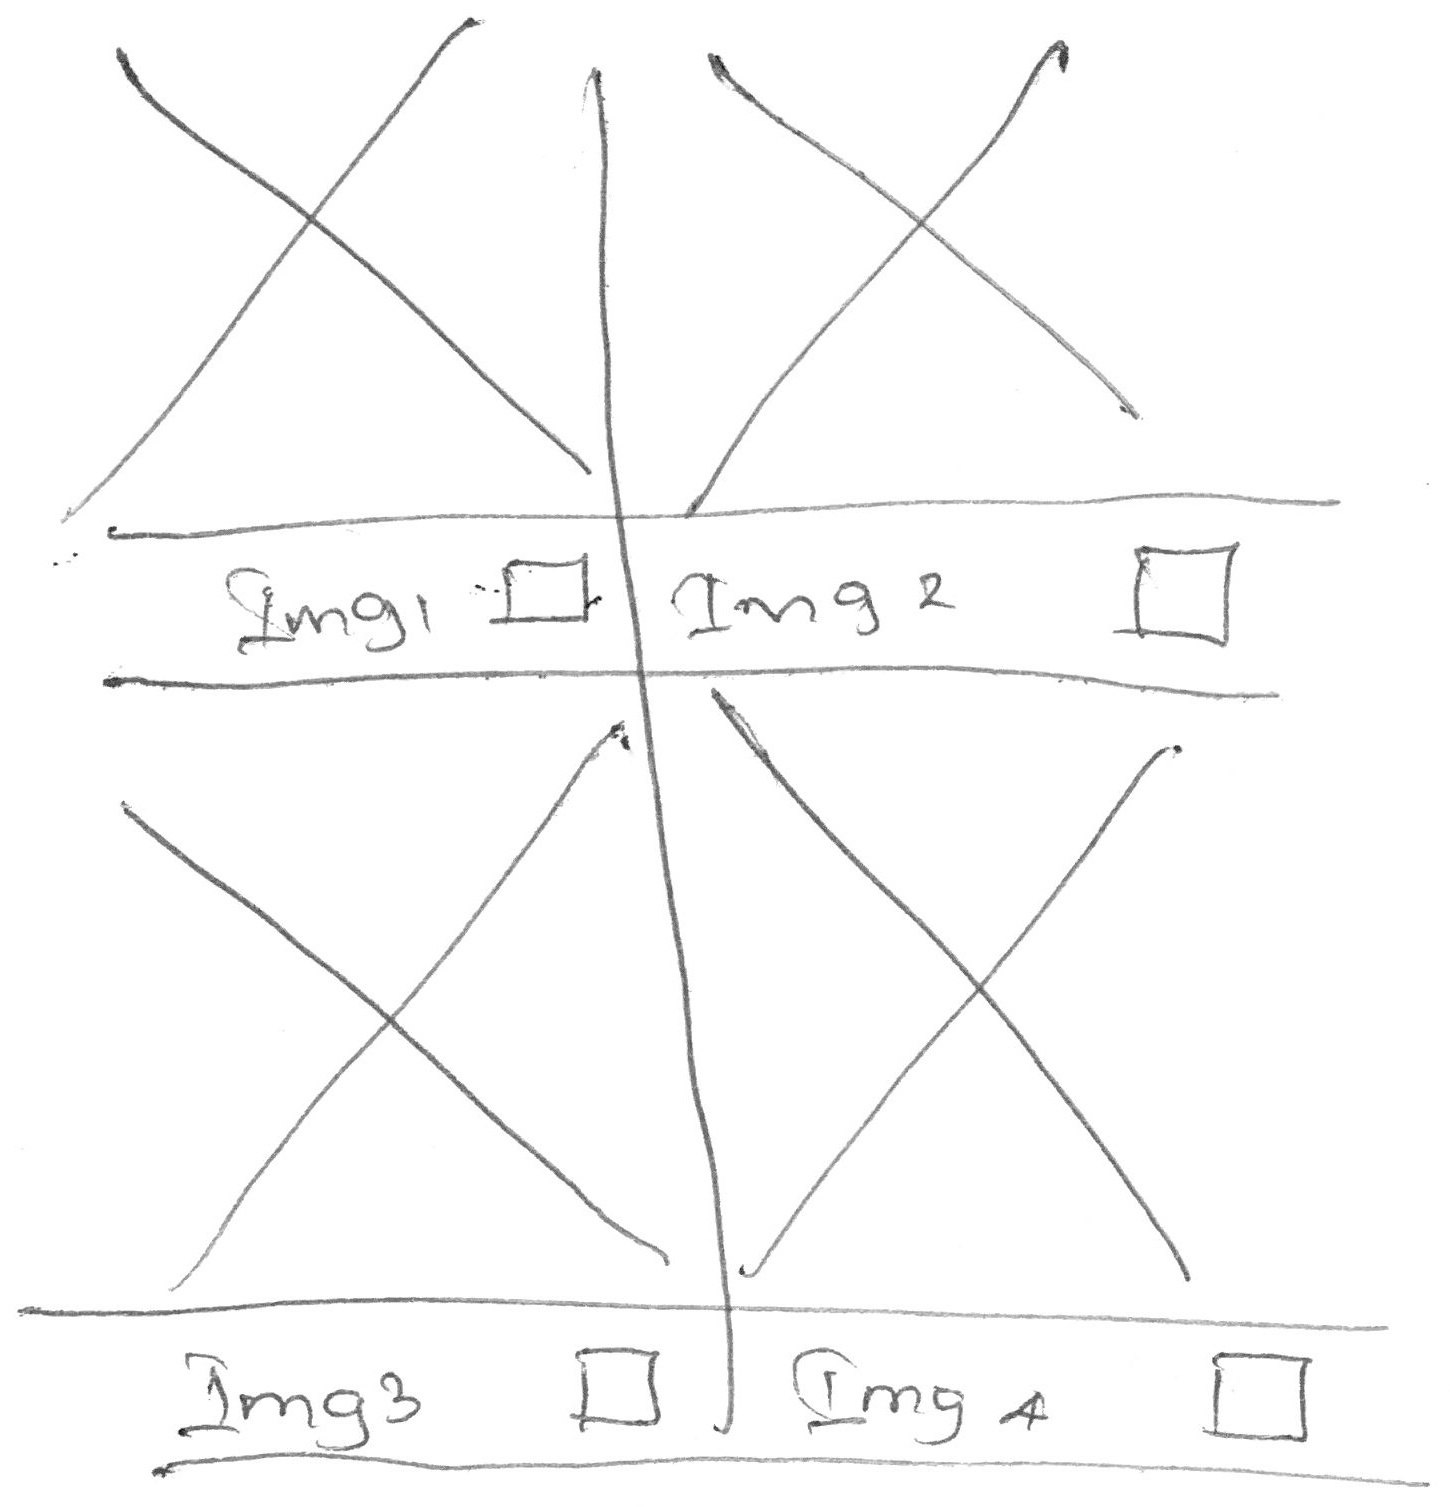 Img1
Img 2
Img3
Img 4